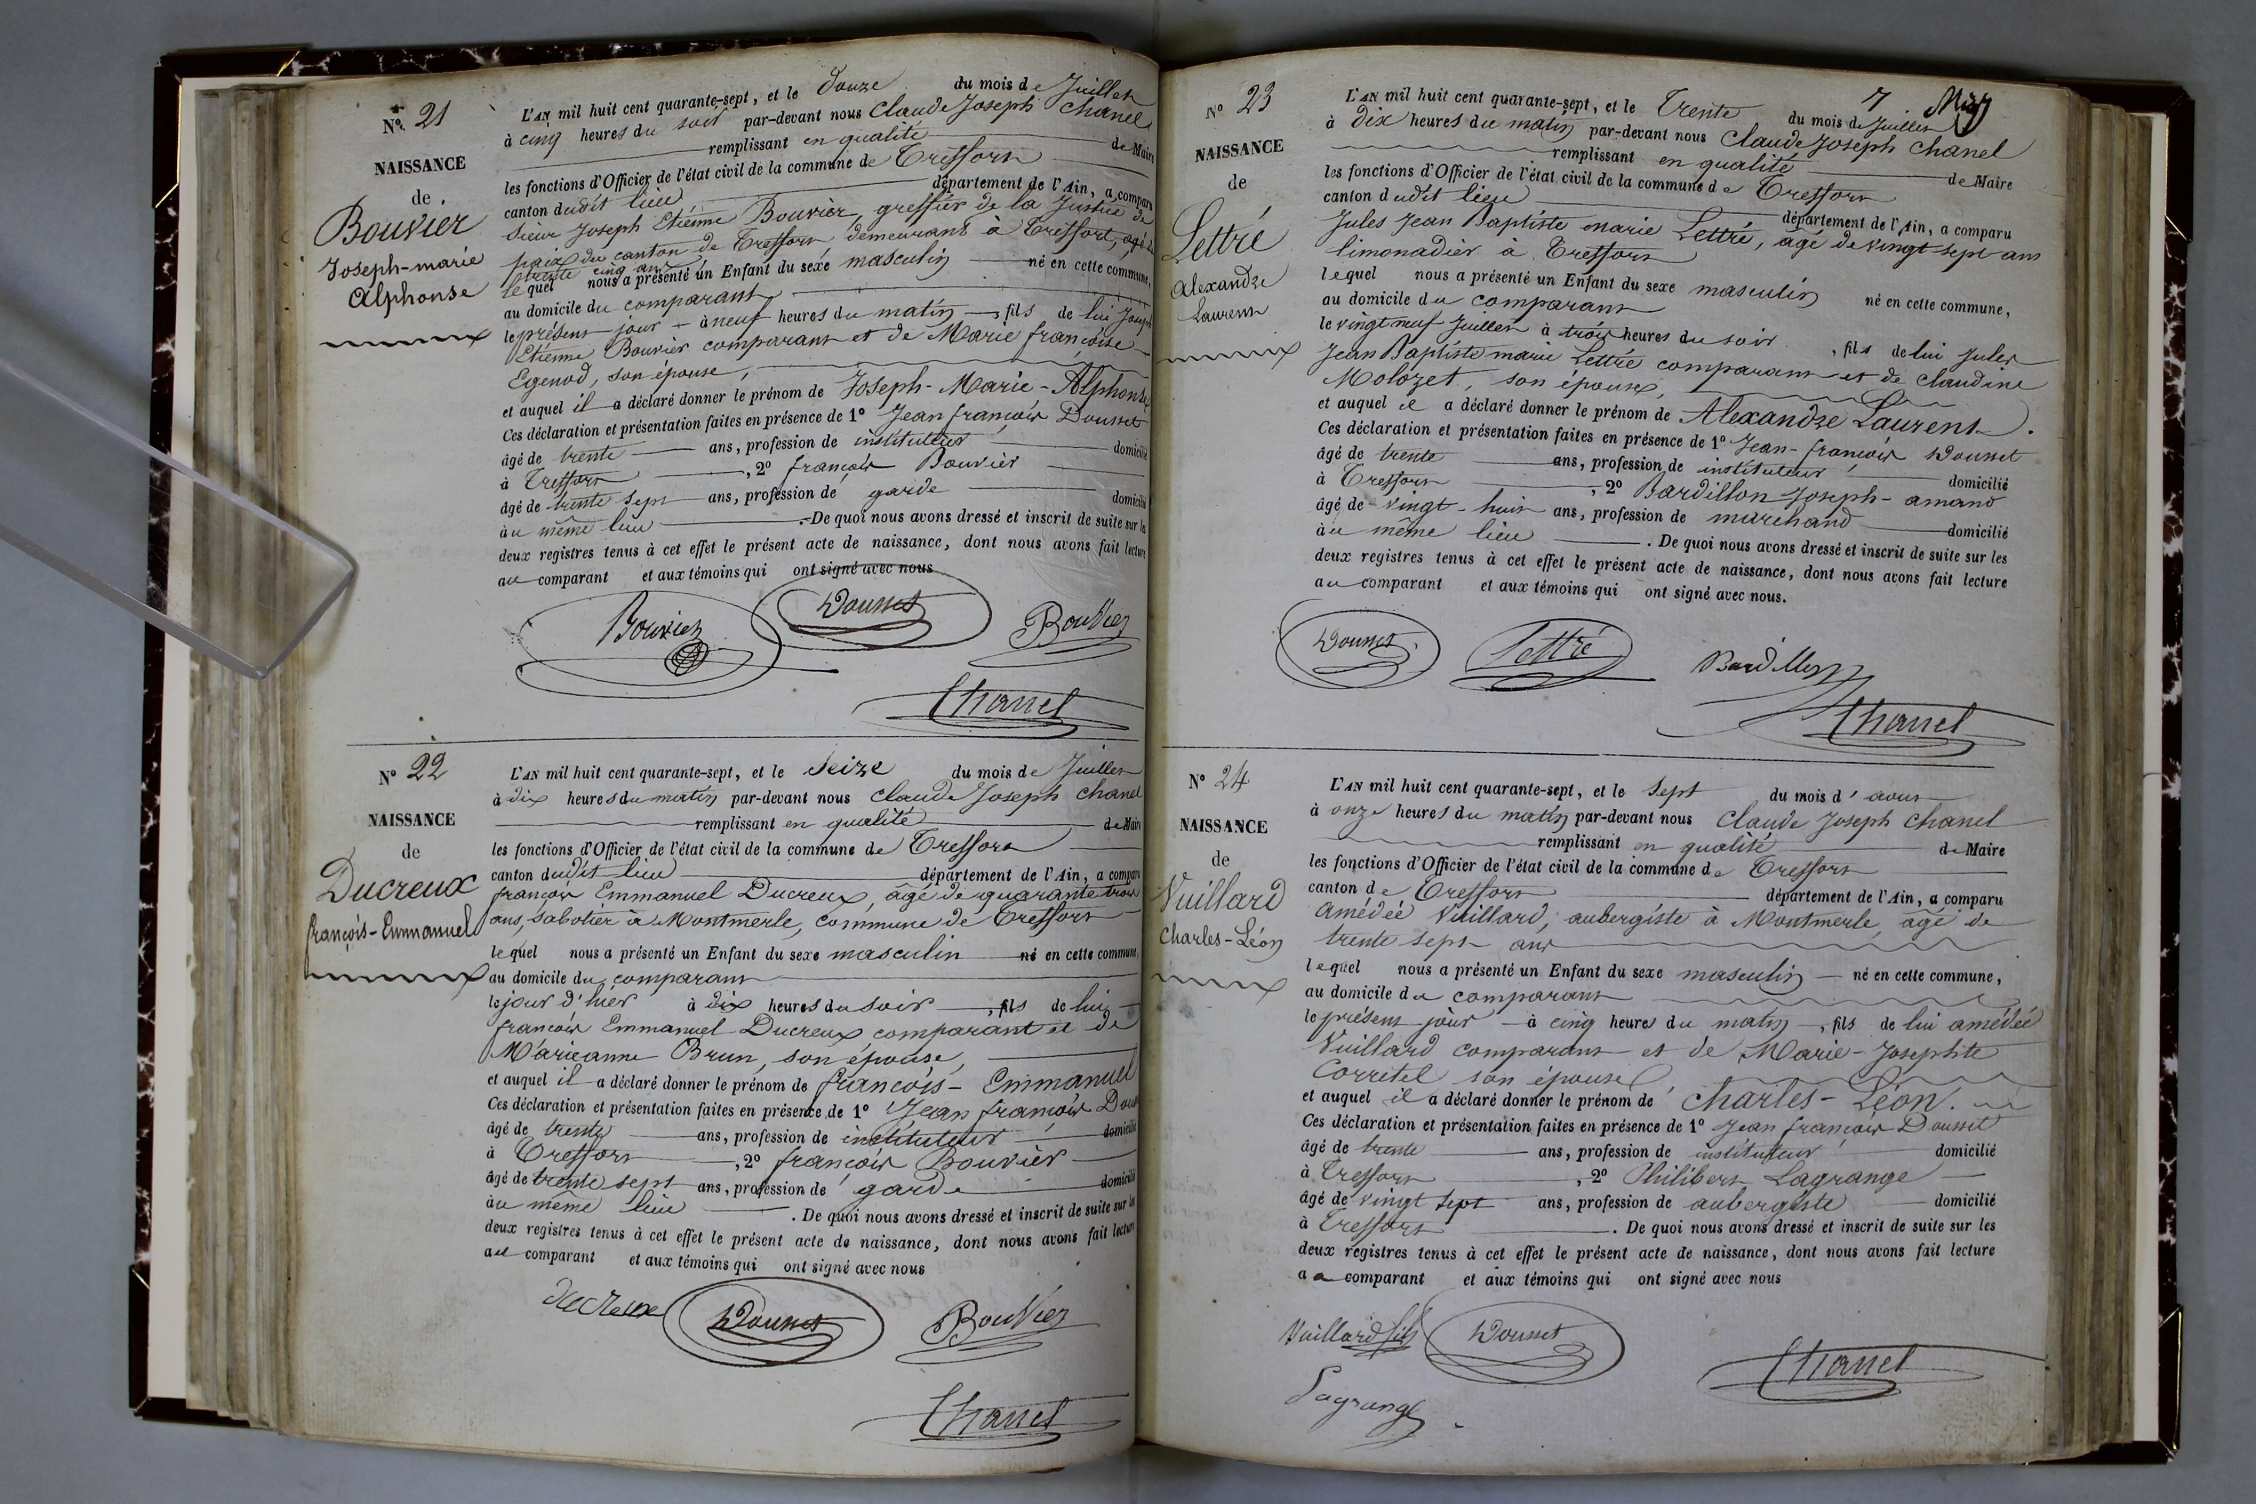 N° 21
NAISSANCE
de
Bouvier
Joseph-marie
Alphonse
L'AN mil huit cent quarante-sept, et le Douze du mois de Juillet
à cinq heures du soir par-devant nous Claude Joseph Chanel
remplissant en qualité de Maire
les fonctions d'Officier de l'état civil de la commune de Treffort
canton dudit lieu département de l'Ain, a comparu
Sieur Joseph Etiénne Bouvier, greffier de la Justice de
paix du canton de Treffort demeurant à Treffort, agé de
trente cinq ans
lequel nous a présenté un Enfant du sexe masculin né en cette commune,
au domicile du comparant
le présent jour à neuf heures du matin, fils de lui Joseph
Etiénne Bouvier comparant et de Marie françoise
Egenod, son épouse,
et auquel il a déclaré donner le prénom de Joseph-Marie-Alphonse
Ces déclaration et présentation faites en présence de 1° Jean françois Dousset
âgé de trente ans, profession de instituteur domicilié
à Treffort, 2° françois Bouvier
âgé de trente sept ans, profession de garde domicilié
au même lieu. De quoi nous avons dressé et inscrit de suite sur les
deux registres tenus à cet effet le présent acte de naissance, dont nous avons fait lecture
au comparant et aux témoins qui ont signé avec nous
Bouvier Dousset Bouvier
Chanel
N° 22
NAISSANCE
de
Ducreux
françois-Emmanuel
L'AN mil huit cent quarante-sept, et le Seize du mois de Juillet
à dix heures du matin par-devant nous Claude Joseph Chanel
remplissant en qualité de Maire
les fonctions d'Officier de l'état civil de la commune de Treffort
canton dudit lieu département de l'Ain, a comparu
françois Emmanuel Ducreux, âgé de quarante trois
ans, sabotier à Montmerle, commune de Treffort
lequel nous a présenté un Enfant du sexe masculin né en cette commune,
au domicile du comparant
le jour d'hier à dix heures du soir, fils de lui
françois Emmanuel Ducreux comparant et de
Marieanne Brun, son épouse,
et auquel il a déclaré donner le prénom de françois-Emmanuel
Ces déclaration et présentation faites en présence de 1° Jean françois Dousset
âgé de trente ans, profession de instituteur domicilié
à Treffort, 2° françois Bouvier
âgé de trente sept ans, profession de garde domicilié
au même lieu. De quoi nous avons dressé et inscrit de suite sur les
deux registres tenus à cet effet le présent acte de naissance, dont nous avons fait lecture
au comparant et aux témoins qui ont signé avec nous
ducreux Dousset Bouvier
Chanel
7
N° 23
NAISSANCE
de
Lettré
Alexandre
Laurent
L'AN mil huit cent quarante-sept, et le Trente du mois de Juillet
à Dix heures du matin par-devant nous Claude Joseph Chanel
remplissant en qualité de Maire
les fonctions d'Officier de l'état civil de la commune de Treffort
canton dudit lieu département de l'Ain, a comparu
Jules Jean Baptiste marie Lettré, âgé de vingt sept ans
limonadier à Treffort
lequel nous a présenté un Enfant du sexe masculin né en cette commune,
au domicile du comparant
le vingt neuf Juillet à trois heures du soir, fils de lui Jules
Jean Baptiste marie Lettré comparant et de claudine
Molozet, son épouse,
et auquel il a déclaré donner le prénom de Alexandre Laurent.
Ces déclaration et présentation faites en présence de 1° Jean-françois Dousset
âgé de trente ans, profession de instituteur domicilié
à Treffort, 2° Bardillon Joseph-amand
âgé de vingt-huit ans, profession de marchand domicilié
au même lieu. De quoi nous avons dressé et inscrit de suite sur les
deux registres tenus à cet effet le présent acte de naissance, dont nous avons fait lecture
au comparant et aux témoins qui ont signé avec nous.
Dousset Lettré Bardillon
Chanel
N° 24
NAISSANCE
de
Vuillard
Charles-Léon
L'AN mil huit cent quarante-sept, et le Sept du mois d'aout
à onze heures du matin par-devant nous Claude Joseph Chanel
remplissant en qualité de Maire
les fonctions d'Officier de l'état civil de la commune de Treffort
canton de Treffort département de l'Ain, a comparu
amédée Vuillard, aubergiste à Montmerle, âgé de
trente sept ans
lequel nous a présenté un Enfant du sexe masculin né en cette commune,
au domicile du comparant
le présent jour à cinq heures du matin, fils de lui amédée
Vuillard comparant et de Marie-Josephte
Corretel son épouse,
et auquel il a déclaré donner le prénom de Charles-Léon.
Ces déclaration et présentation faites en présence de 1° Jean françois Dousset
âgé de trente ans, profession de instituteur domicilié
à Treffort, 2° Philibert Lagrange
âgé de vingt sept ans, profession de aubergiste domicilié
à Treffort. De quoi nous avons dressé et inscrit de suite sur les
deux registres tenus à cet effet le présent acte de naissance, dont nous avons fait lecture
au comparant et aux témoins qui ont signé avec nous
Vuillard fils Dousset
Chanel
Lagrange